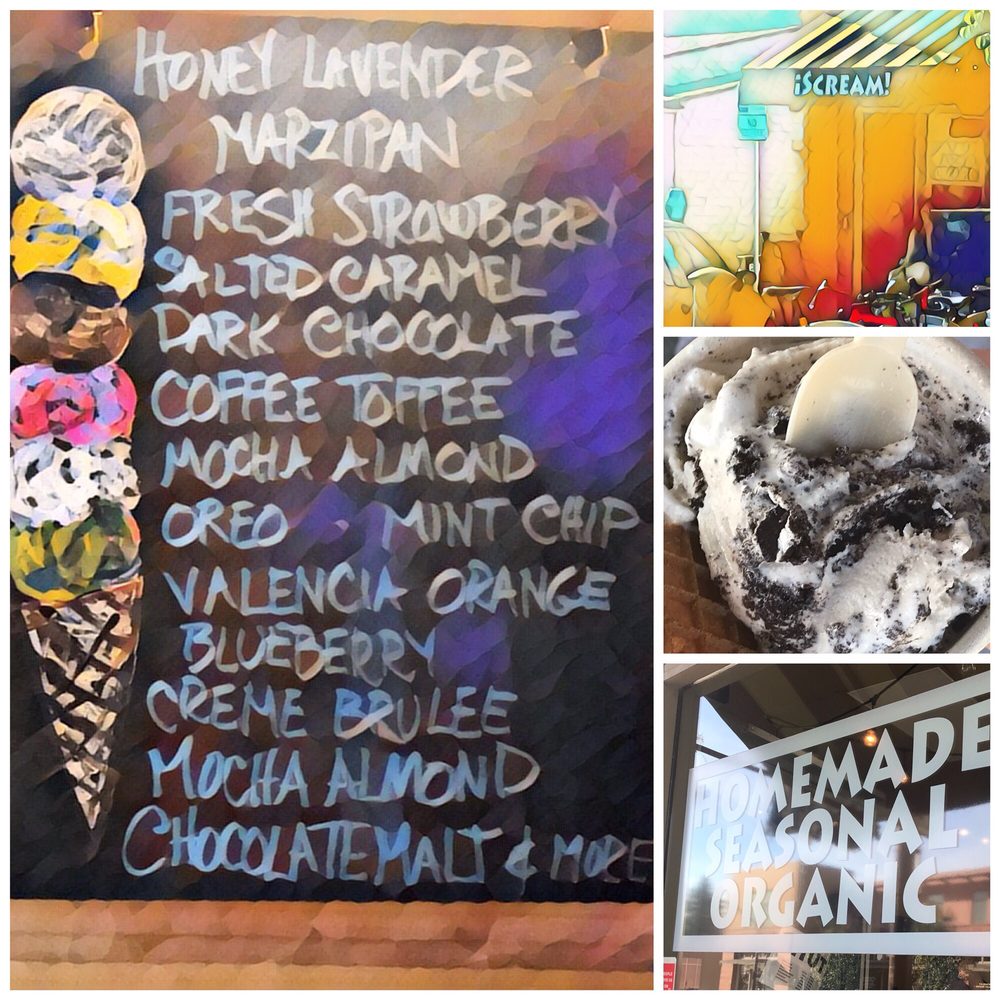 HONEY LAVENDER
MARZIPAN
FRESH STRAWBERRY
SALTED CARAMEL
DARK CHOCOLATE
COFFEE TOFFEE
MOCHA ALMOND
OREO MINT CHIP
VALENCIA ORANGE
BLUEBERRY
CREME BRULEE
MOCHA ALMOND
CHOCOLATE MALT & MORE
¡SCREAM!
NO
HOMEMADE
SEASONAL
ORGANIC